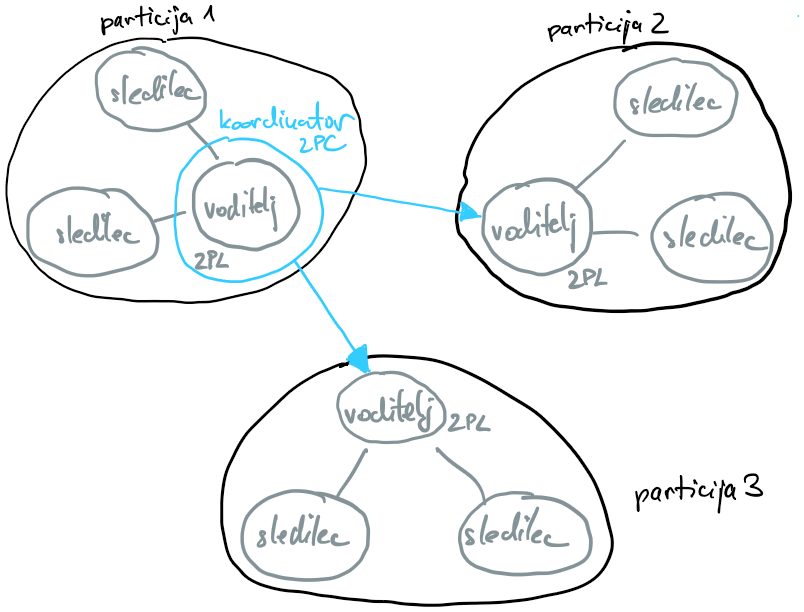 particija 1
sledilec
koordinator
2PC
voditelj
sledilec
2PL
particija 2
sledilec
voditelj
sledilec
2PL
voditelj
2PL
sledilec
sledilec
particija 3